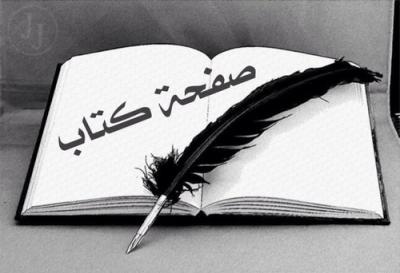 صفحة كتاب
JJ